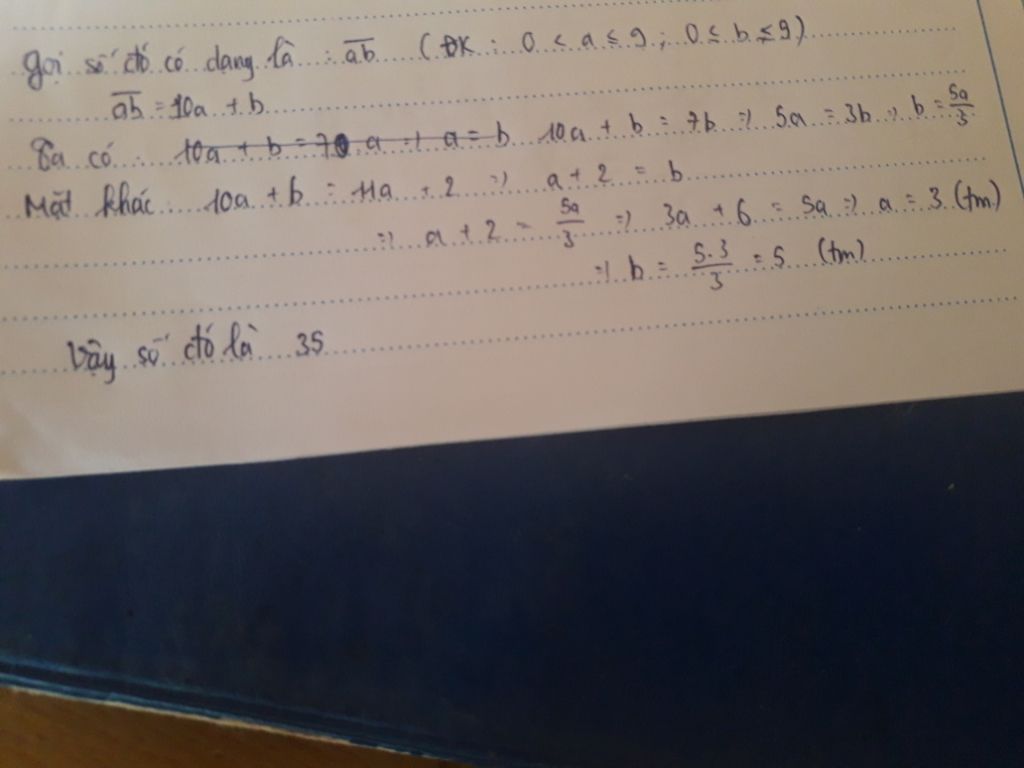 Gọi số đó có dạng là : ab̅ (ĐK : 0 < a ≤ 9 ; 0 ≤ b ≤ 9)
ab̅ = 10a + b
Ta có : 10a + b = 70 a => a = b 10a + b = 7b => 5a = 3b => b = 5a/3
Mặt khác : 10a + b = 11a + 2 => a + 2 = b
=> a + 2 = 5a/3 => 3a + 6 = 5a => a = 3 (tm)
=> b = 5.3/3 = 5 (tm)
Vậy số đó là 35